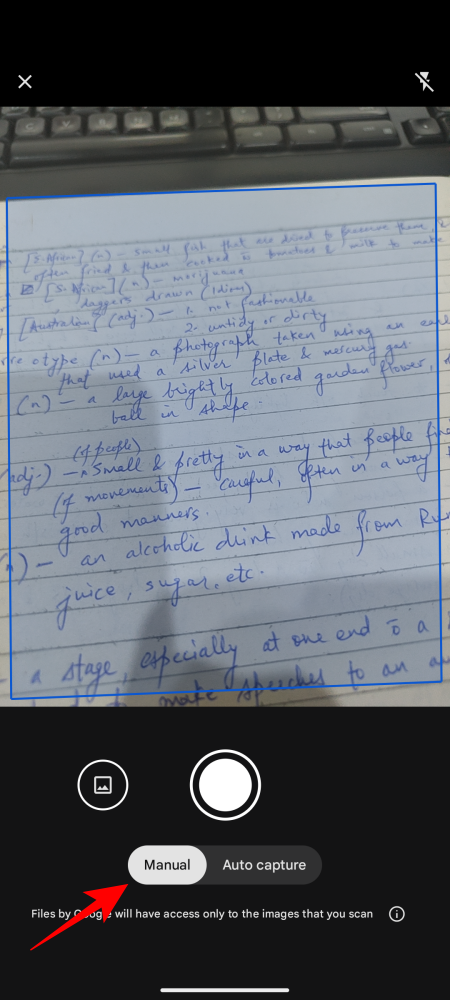 [S. African] (n) – small fish that are dried to preserve them, &
often fried & then cooked ō tomatoes & milk to make
[S. African] (n) – marijuana
daggers drawn (idiom)
[Australian] (adj.) – 1. not fashionable
2. untidy or dirty
otype (n) – a photograph taken using an
that used a silver plate & mercury gas.
(n) – a large brightly colored garden flower,
ball in shape.
(of people)
adj.) – small & pretty in a way that people
(of movements) – careful, often in a way
good manners.
n) – an alcoholic drink made from
juice, sugar, etc.
a stage, especially at one end ō a
to make speeches to an
Manual
Auto capture
Files by Google will have access only to the images that you scan